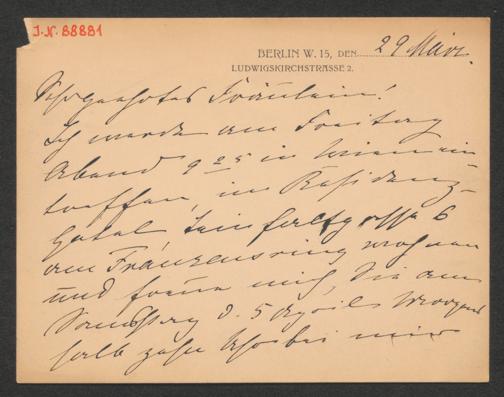 J.N. 88881
BERLIN W. 15, DEN 29 März.
LUDWIGSKIRCHSTRASSE 2.
Sehr geehrtes Fräulein!
Ich werde am Freitag
Abend 9 25 in Wien ein
treffen, im Residenz-
hotel, Teinfaltgasse 6
am Franzensring wohnen
und freue mich, Sie am
Samstag d. 5 April Morgens
halb zehn Uhr bei mir